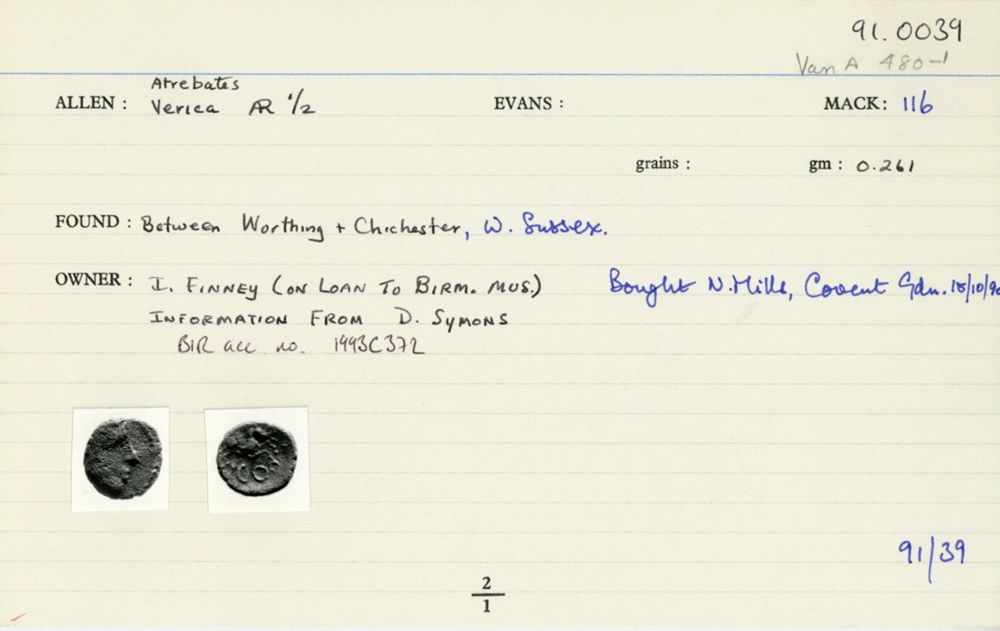 91.0039
Van A 480-1
Atrebates
ALLEN : Verica AR 1/2 EVANS : MACK: 116
grains : gm : 0.261
FOUND : Between Worthing + Chichester, W. Sussex.
OWNER : I. FINNEY (ON LOAN TO BIRM. MUS.) Bought N. Mills, Covent Gdn. 15/10/90
INFORMATION FROM D. SYMONS
BIR acc no. 1993C372
91/39
2
1